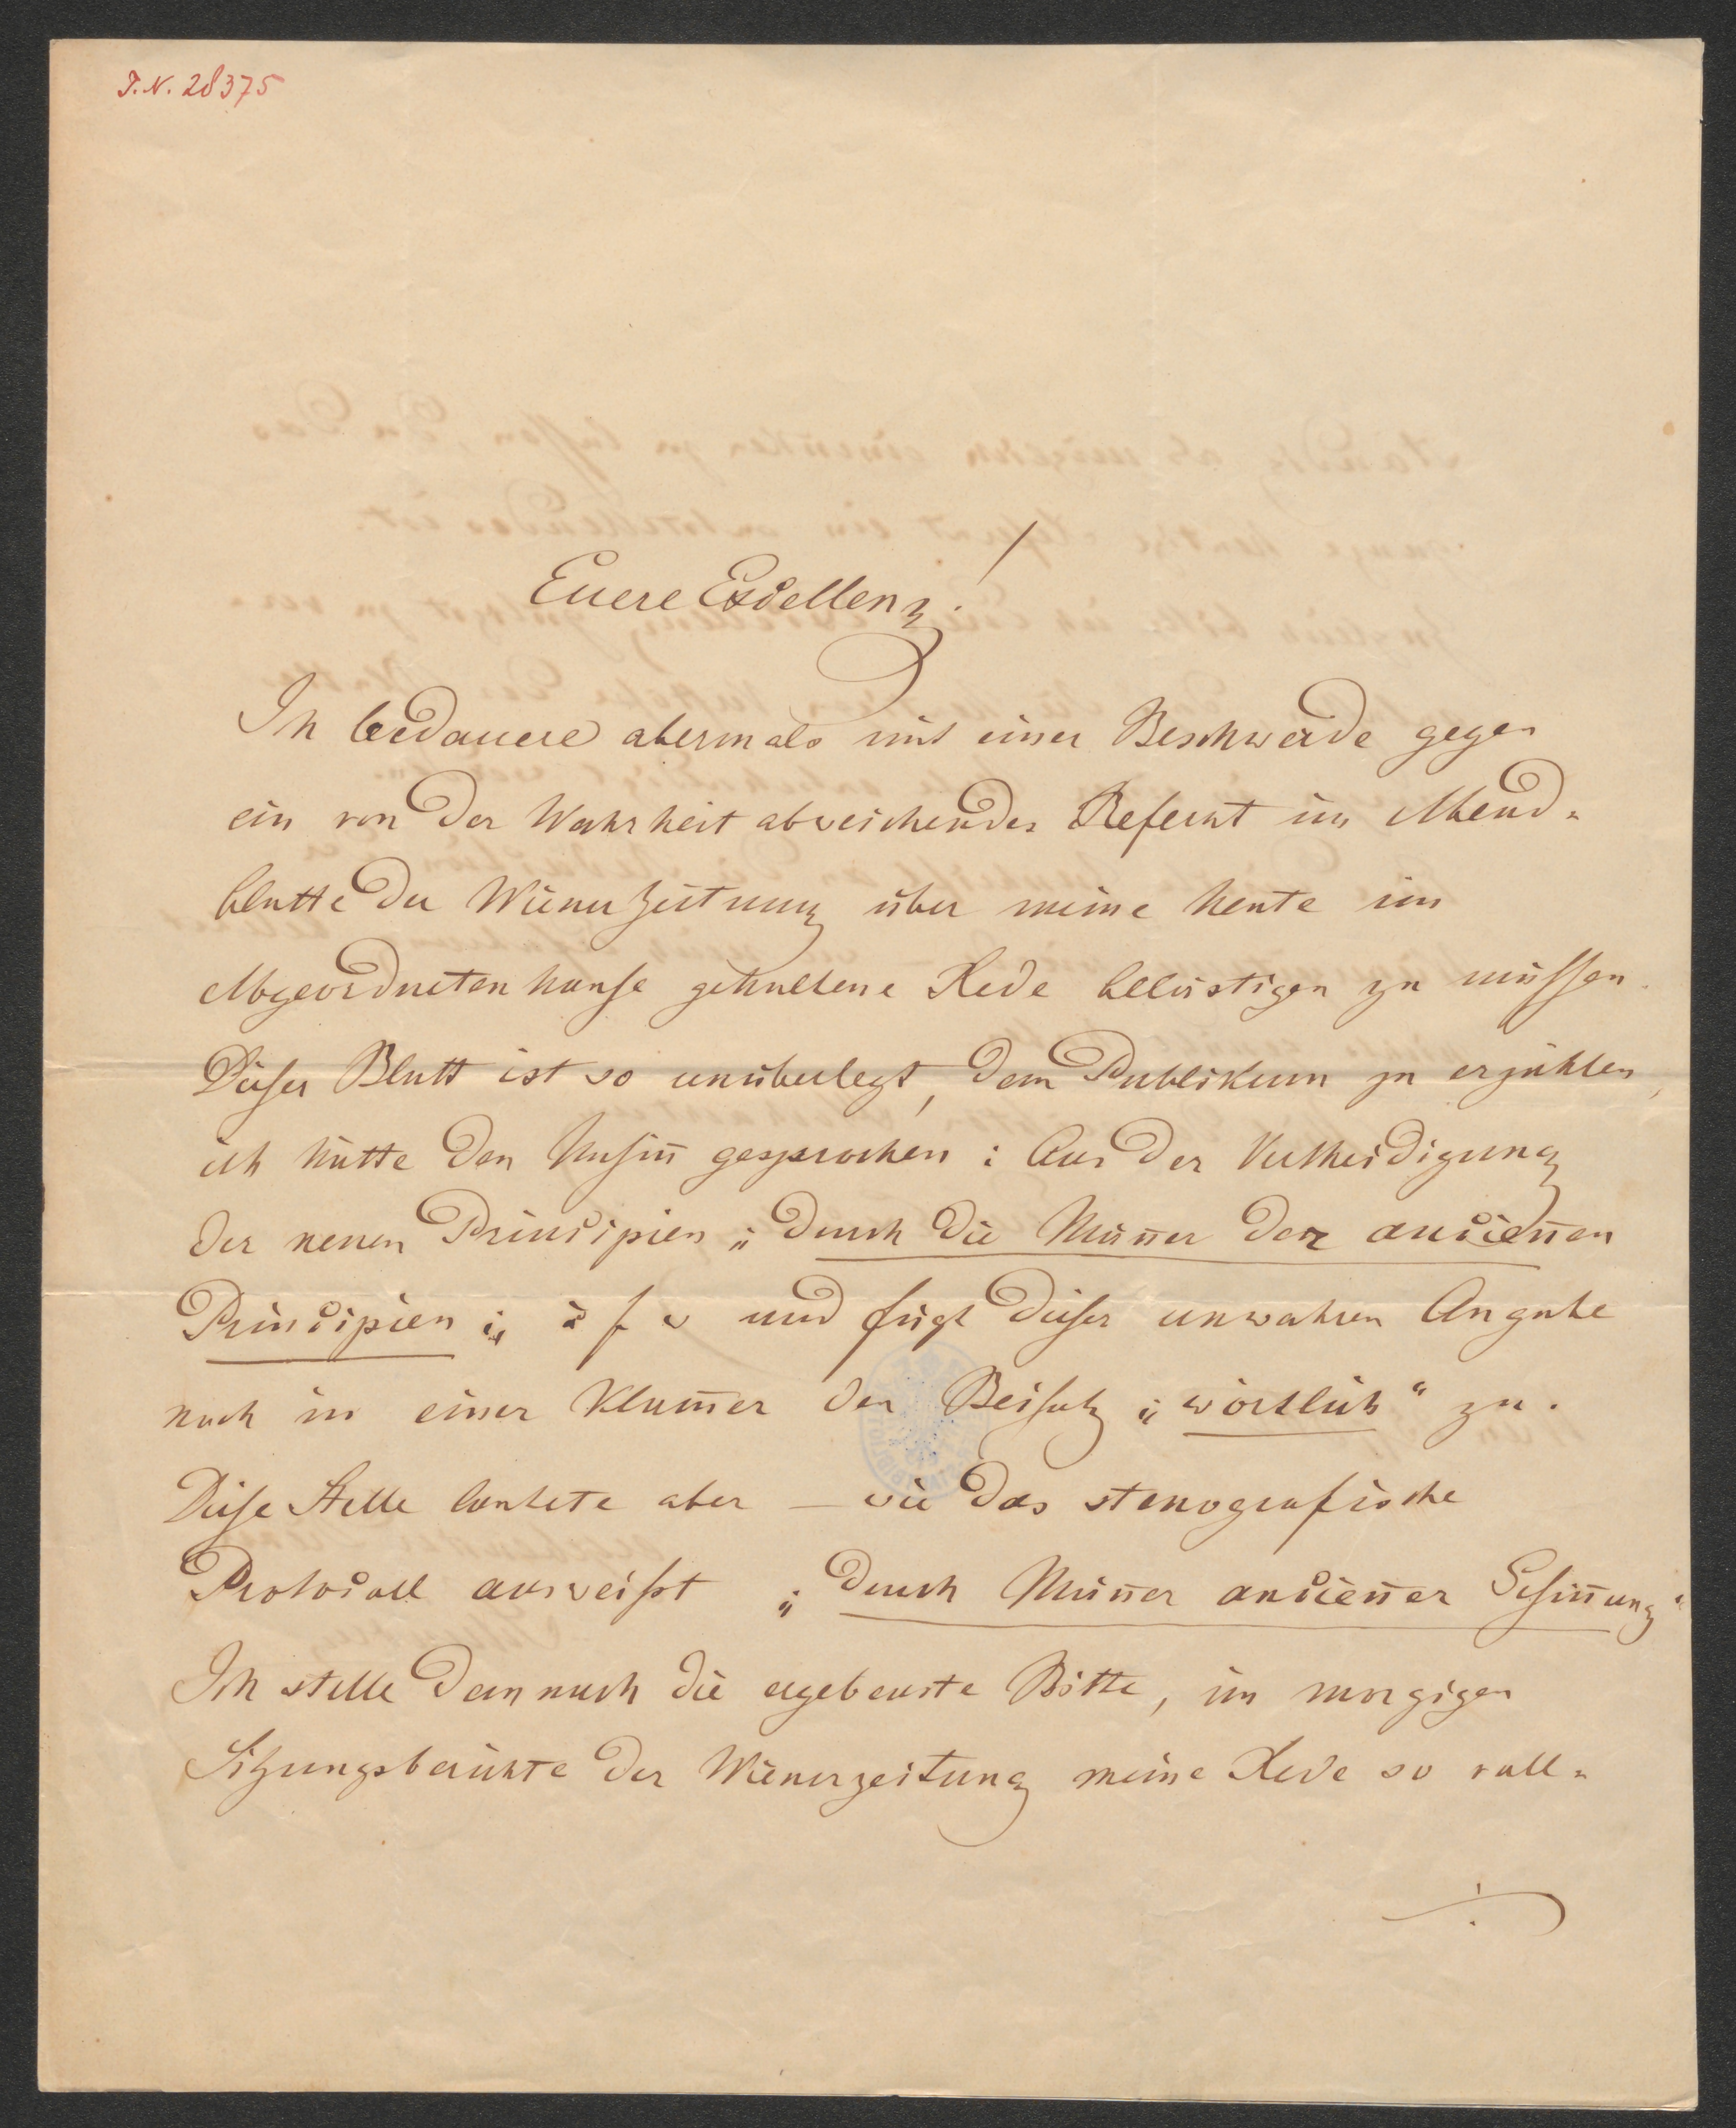 I.N. 28375
Euere Excellenz!
Ich bedauere abermals mit einer Beschwerde gegen
ein von der Wahrheit abweichendes Referat im Abend-
blatte der Wiener Zeitung über meine heute im
Abgeordnetenhause gehaltene Rede belästigen zu müssen.
Dieses Blatt ist so unüberlegt, dem Publikum zu erzählen,
ich hätte den Unsin̄ gesprochen: Aus der Vertheidigung
der neuen Principien „durch die Män̄er der ancien̄en
Principien“ u s w und fügt dieser unwahren Angabe
noch in einer Klam̄er den Beisatz „wörtlich“ zu.
Diese Stelle lautete aber — wie das stenografische
Protocoll ausweißt „durch Män̄er ancien̄er Gesin̄ung“
Ich stelle demnach die ergebenste Bitte, im morgigen
Sitzungsberichte der Wienerzeitung meine Rede so voll-